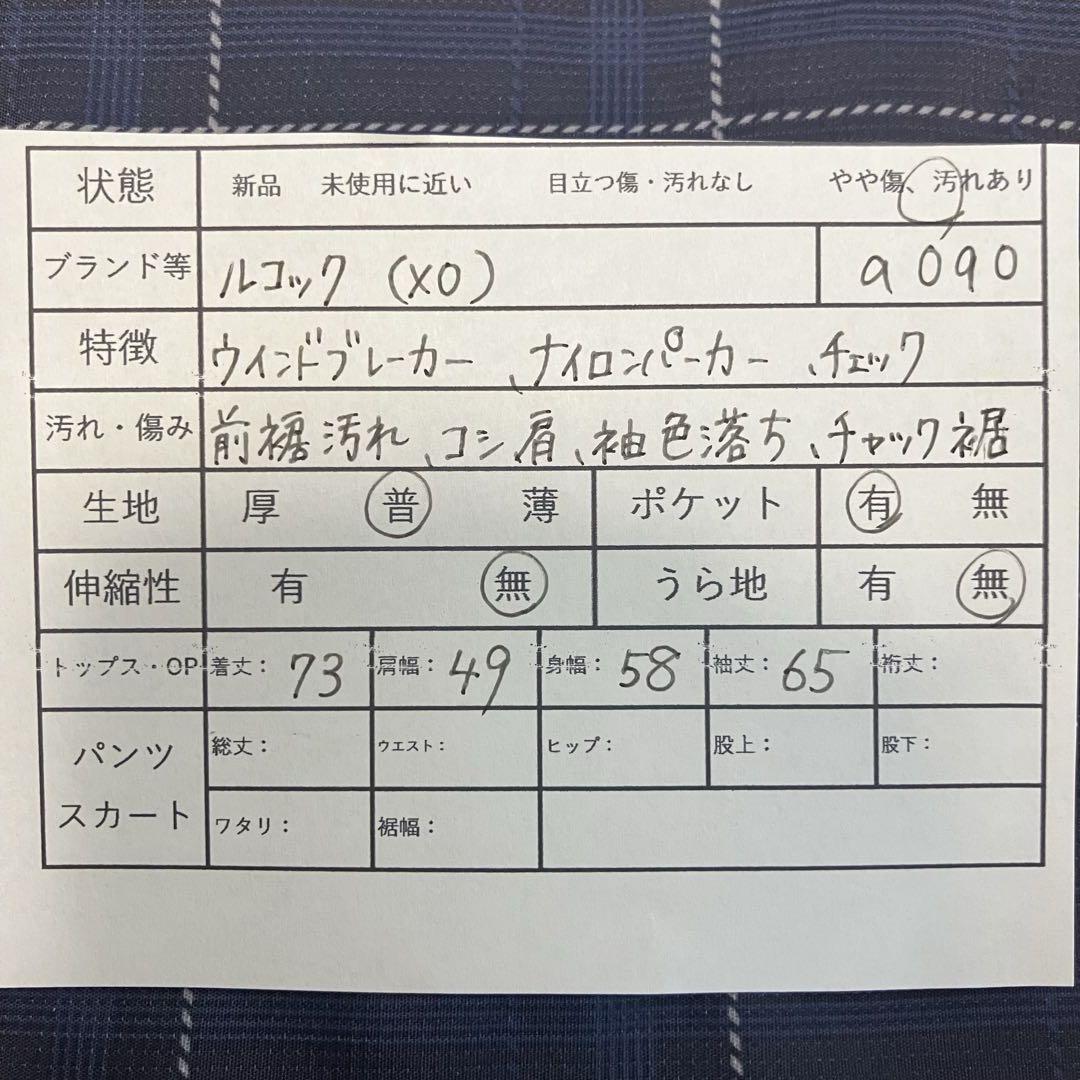 状態 新品 未使用に近い 目立つ傷・汚れなし やや傷、汚れあり
ブランド等 ルコック (XO) a090
特徴 ウインドブレーカー、ナイロンパーカー、チェック
汚れ・傷み 前裾汚れ、コシ、肩、袖色落ち、チャック裾
生地 厚 普 薄 ポケット 有 無
伸縮性 有 無 うら地 有 無
トップス・OP 着丈: 73 肩幅: 49 身幅: 58 袖丈: 65 裄丈:
パンツ スカート 総丈: ウエスト: ヒップ: 股上: 股下:
ワタリ: 裾幅: